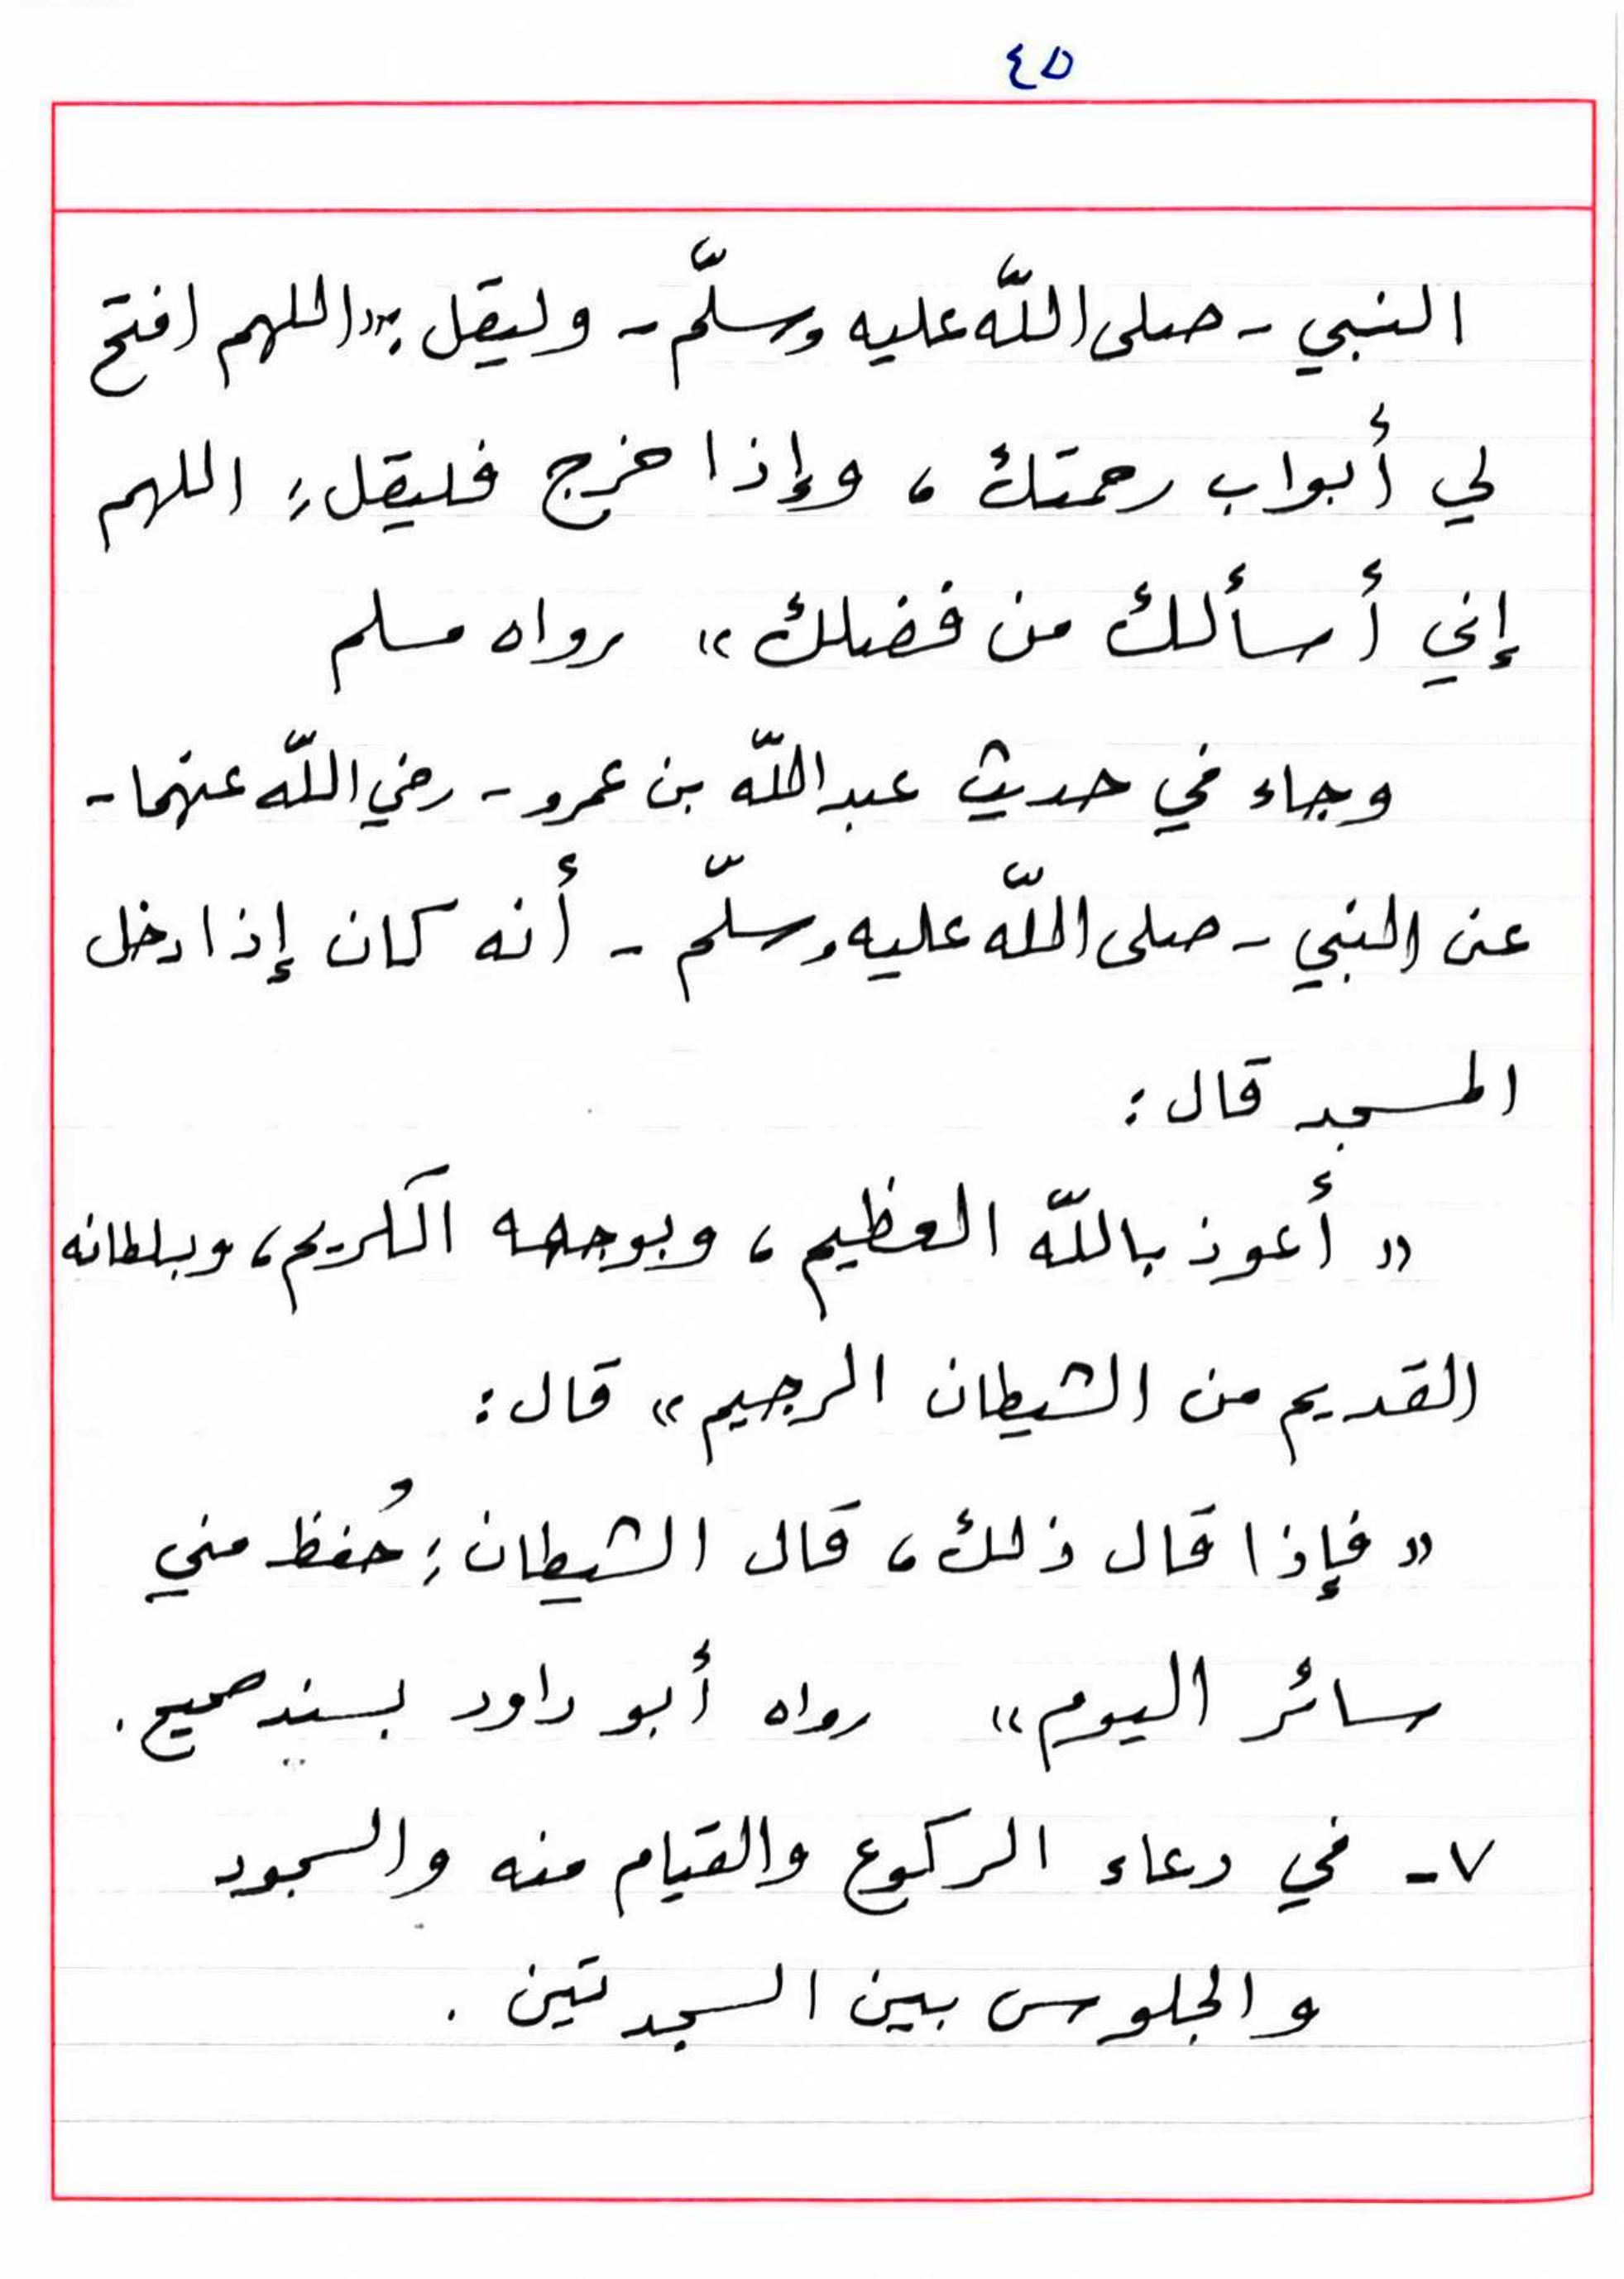 ٤٥
النبي - صلى اللّه عليه وسلّم - وليقل: «اللهم افتح
لي أبواب رحمتك، وإذا خرج فليقل: اللهم
إني أسألك من فضلك» رواه مسلم
وجاء في حديث عبد اللّه بن عمرو - رضي اللّه عنهما -
عن النبي - صلى اللّه عليه وسلّم - أنه كان إذا دخل
المسجد قال:
« أعوذ باللّه العظيم، وبوجهه الكريم، وسلطانه
القديم من الشيطان الرجيم» قال:
« فإذا قال ذلك، قال الشيطان: حُفظ مني
سائر اليوم» رواه أبو داود بسند صحيح.
٧- في دعاء الركوع والقيام منه والسجود
والجلوس بين السجدتين.